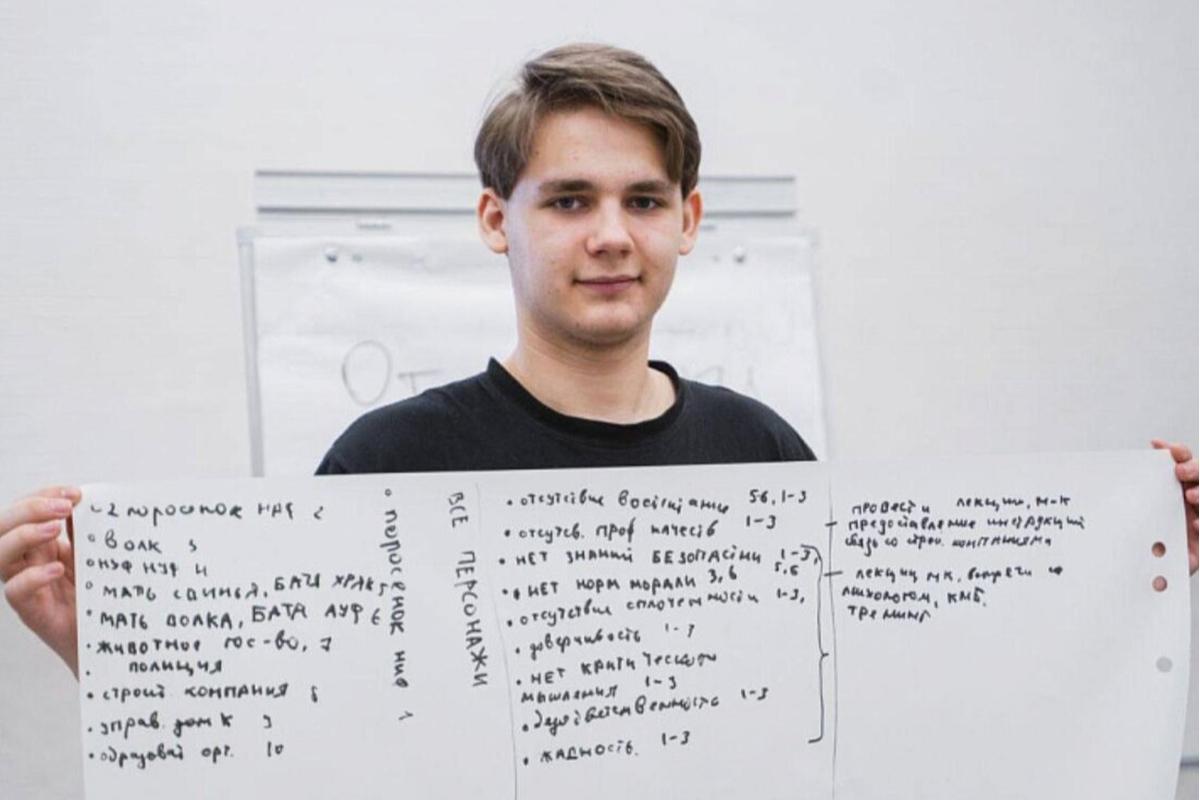 От
2 поросёнок НАФ 2
• ВОЛК 3
• НУФ НУФ 4
• МАТЬ СВИНЬЯ, БАТЯ ХРЯК 5
• МАТЬ ВОЛКА, БАТЯ АУФ 6
• ЖИВОТНОЕ ГОС-ВО, 7
• ПОЛИЦИЯ
• СТРОИТ. КОМПАНИЯ 8
• управ. дом К 9
• образоват орг. 10
• ПОРОСЕНОК НИФ 1
ВСЕ ПЕРСОНАЖИ
• отсутствие воспитание 5 6, 1-3
• отсутсв. проф качеств 1-3
• НЕТ ЗНАНИЙ БЕЗОПАСТИ 1-3,
• НЕТ НОРМ МОРАЛИ 3, 6 5,6
• отсутствие сплоченности 1-3,
• доверчивость 1-3
• НЕТ КРИТИЧЕСКОГО
МЫШЛЕНИЯ 1-3
• безответственность 1-3
• ЖАДНОСТЬ. 1-3
ПРОВЕСТИ ЛЕКЦИИ, М-К
ПРЕДОСТАВЛЕНИЕ ИНСТРУКЦИЙ
связь со строит. компаниями
ЛЕКЦИИ МК, встречи с
психологом, КМБ,
ТРЕНИНГ